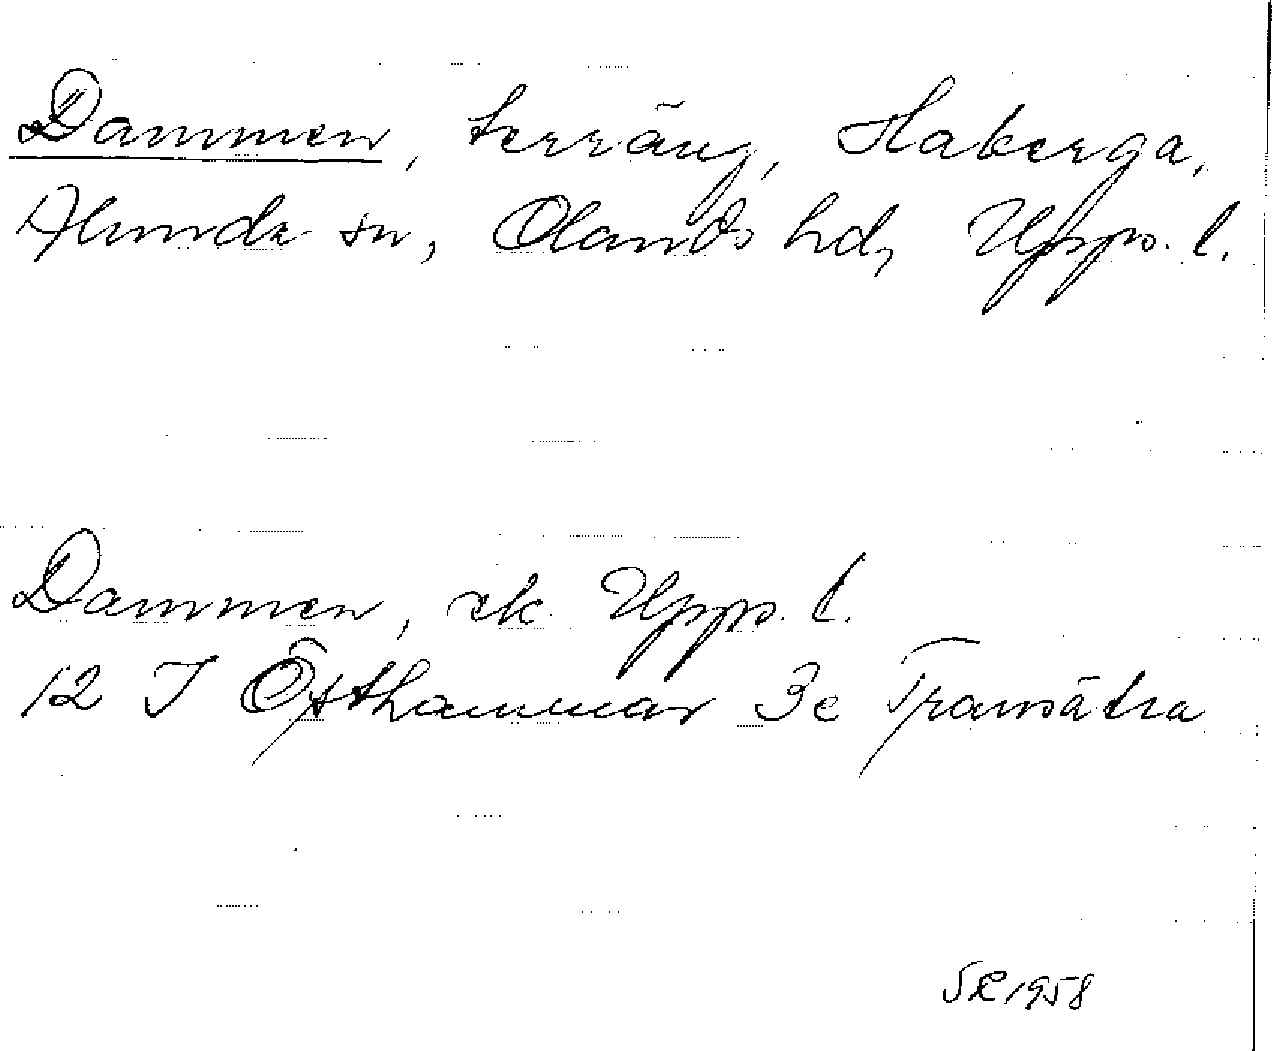 Dammen, terräng, Haberga,
Alunda sn, Olands hd, Upps. l.
Dammen, ek. Upps. l.
12 I Östhammar 3e Transätra
SE 1958